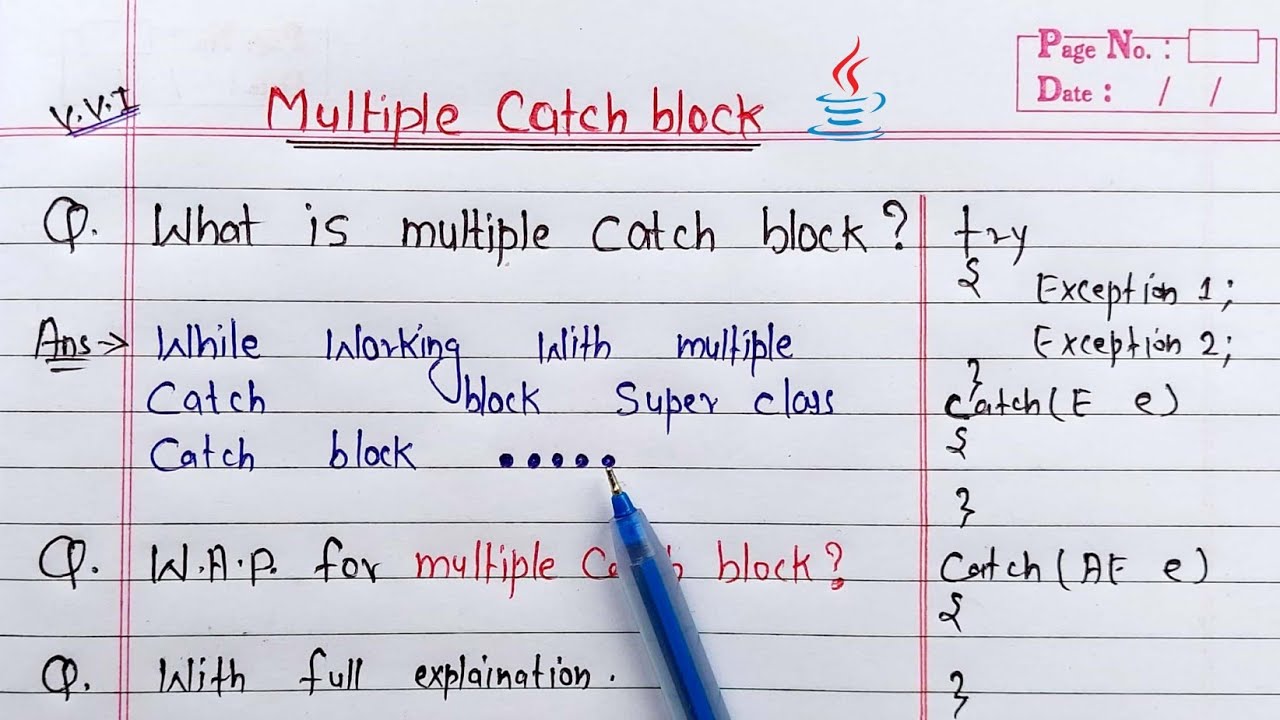 Page No. :
Date : / /
V.V.I
Multiple Catch block
Q. What is multiple Catch block?
Ans→ While Working With multiple
Catch block Super class
Catch block .....
Q. W.A.P. for multiple block?
Q. With full explaination.
try
{
Exception 1;
Exception 2;
}
Catch(E e)
{
}
Catch(AE e)
{
}